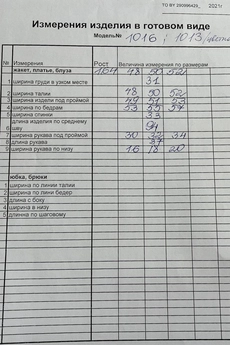 ТО BY 2021г
Измерения изделия в готовом виде
Модель№ 1016; 1013
№ Измерения Рост Величина измерения по размерам
жакет, платье, блуза 164 48 50 52
1 ширина груди в узком месте 31
2 ширина талии 48 50 52
3 ширина изделия под проймой 49 51 53
4 ширина по бедрам 53 55 57
5 ширина спинки 33
6 длина изделия по среднему шву 94
7 ширина рукава под проймой 30 32 34
8 длина рукава 37
9 ширина рукава по низу 16 18 20
юбка, брюки
1 ширина по линии талии
2 ширина по лини бедер
3 длина с боку
4 ширина в низу
5 длинна по шаговому